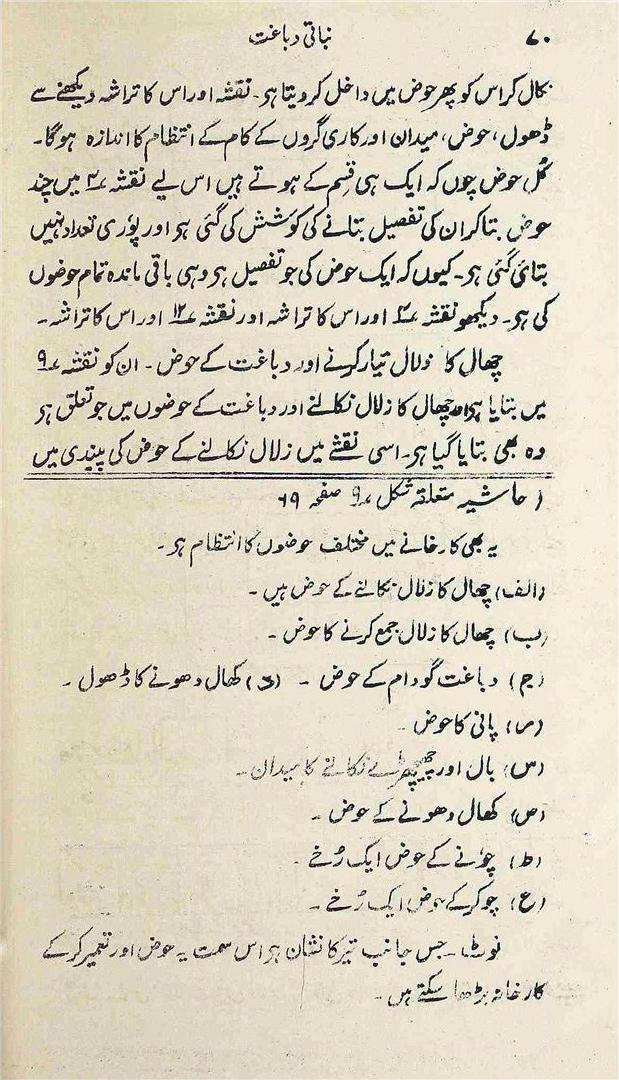 ۷۰ نباتی دباغت
نکال کر اس کو پھر حوض میں داخل کر دیتا ہی۔ نقشہ اور اس کا تراشہ دیکھنے سے
ڈھول، حوض، میدان اور کاری گروں کے کام کے انتظام کا اندازہ ہوگا۔
کُل حوض چوں کہ ایک ہی قسم کے ہوتے ہیں اس لیے نقشہ ۳ میں چند
حوض بتا کر ان کی تفصیل بتانے کی کوشش کی گئی ہی اور پوری تعداد نہیں
بتائی گئی ہی۔ کیوں کہ ایک حوض کی جو تفصیل ہی وہی باقی ماندہ تمام حوضوں
کی ہی۔ دیکھو نقشہ ۳ اور اس کا تراشہ اور نقشہ ۱۲ اور اس کا تراشہ۔
چھال کا زلال تیار کرنے اور دباغت کے حوض۔ ان کو نقشہ ۹
میں بتایا ہی اور چھال کا زلال نکالنے اور دباغت کے حوضوں میں جو تعلق ہی
وہ بھی بتایا گیا ہی۔ اسی نقشے میں زلال نکالنے کے حوض کی پیندی میں
( حاشیہ متعلقہ شکل ۹ صفحہ ۶۹
یہ بھی کارخانے میں مختلف حوضوں کا انتظام ہی۔
(الف) چھال کا زلال نکالنے کے حوض ہیں۔
(ب) چھال کا زلال جمع کرنے کا حوض۔
(ج) دباغت گودام کے حوض ۔ (د) کھال دھونے کا ڈھول۔
(ر) پانی کا حوض۔
(س) بال اور چھیچھڑے نکالنے کا میدان۔
(ص) کھال دھونے کے حوض۔
(ط) چونے کے حوض ایک رُخے۔
(ع) چوکر کے حوض ایک رُخے۔
نوٹ۔ جس جانب تیر کا نشان ہی اس سمت یہ حوض اور تعمیر کر کے
کارخانہ بڑھا سکتے ہیں۔